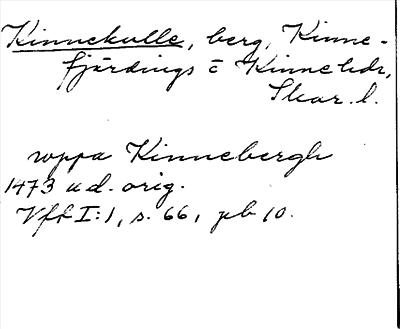 Kinnekulle, berg, Kinne-
fjärdings o Kinne hdr,
Skar. l.
uppa Kinnebergh
1473 u d. orig.
Vff I:1, s. 66, pb 10.